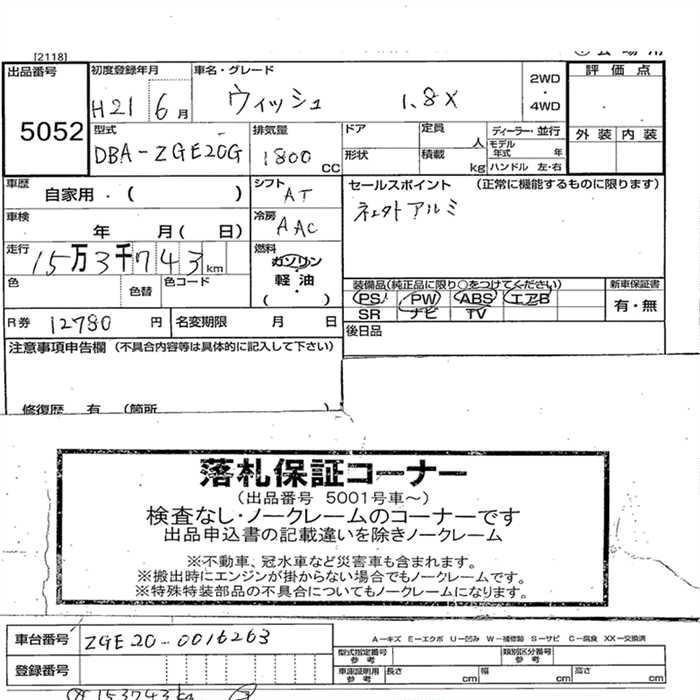 [2118]
出品番号 5052
初度登録年月 H21 6月
車名・グレード ウィッシュ 1.8X
2WD・4WD
評価点
外装 内装
型式 DBA-ZGE20G
排気量 1800cc
ドア
定員 人
形状
積載 kg
ディーラー・並行
モデル年式 年
ハンドル 左・右
車歴 自家用・( )
シフト AT
セールスポイント (正常に機能するものに限ります)
車検 年 月( 日)
冷房 AAC
走行 15万3千743km
燃料 ガソリン・軽油 ( )
色
色替
色コード
装備品(純正品に限り○をつけてください)
PS PW ABS エアB
SR ナビ TV
新車保証書 有・無
R券 12780円
名変期限 月 日
後日品
注意事項申告欄 (不具合内容等は具体的に記入して下さい)
修復歴 有 (箇所 )
落札保証コーナー
(出品番号 5001号車~)
検査なし・ノークレームのコーナーです
出品申込書の記載違いを除きノークレーム
※不動車、冠水車など災害車も含まれます。
※搬出時にエンジンが掛からない場合でもノークレームです。
※特殊特装部品の不具合についてもノークレームになります。
車台番号 ZGE20-0016263
A-キズ E-エクボ U-凹み W-補修跡 S-サビ C-腐食 XX-交換済
登録番号
型式指定番号 参考
類別区分番号 参考
車庫証明用 参考 長さ cm 幅 cm 高さ cm
153743km